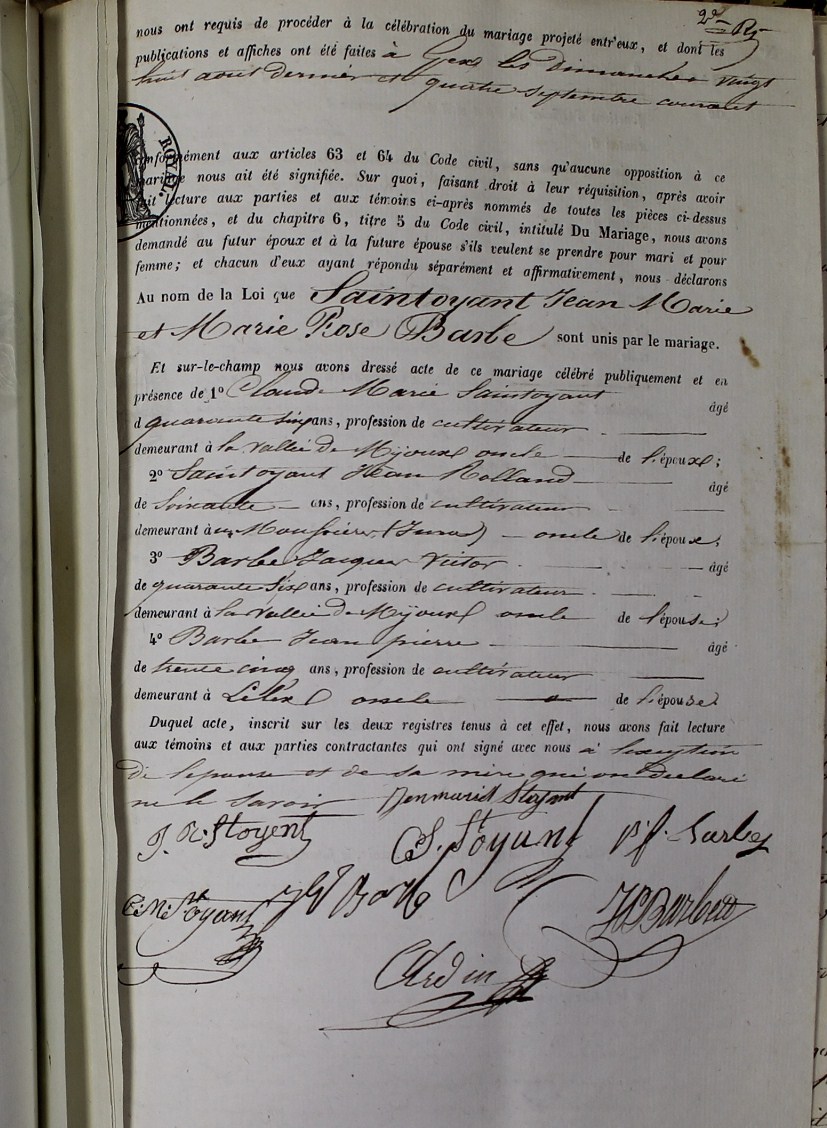 2e
nous ont requis de procéder à la célébration du mariage projeté entr'eux, et dont les
publications et affiches ont été faites à Gex les Dimanches vingt
huit aout dernier et quatre septembre courant
ROYAL
conformément aux articles 63 et 64 du Code civil, sans qu'aucune opposition à ce
mariage nous ait été signifiée. Sur quoi, faisant droit à leur réquisition, après avoir
fait lecture aux parties et aux témoins ci-après nommés de toutes les pièces ci-dessus
mentionnées, et du chapitre 6, titre 5 du Code civil, intitulé Du Mariage, nous avons
demandé au futur époux et à la future épouse s'ils veulent se prendre pour mari et pour
femme; et chacun d'eux ayant répondu séparément et affirmativement, nous déclarons
Au nom de la Loi que Saintoyant Jean Marie
et Marie Rose Barbe sont unis par le mariage.
Et sur-le-champ nous avons dressé acte de ce mariage célébré publiquement et en
présence de 1o Claude Marie Saintoyant âgé
d quarante six ans, profession de cultivateur
demeurant à la vallée de Mijoux oncle de l'époux;
2o Saintoyant Jean Rolland âgé
de soixante ans, profession de cultivateur
demeurant à (Jura) oncle de l'époux;
3o Barbe Jacques Victor âgé
de quarante six ans, profession de cultivateur
demeurant à la vallée de Mijoux oncle de l'épouse;
4o Barbe Jean pierre âgé
de trente cinq ans, profession de cultivateur
demeurant à Lélex oncle de l'épouse
Duquel acte, inscrit sur les deux registres tenus à cet effet, nous avons fait lecture
aux témoins et aux parties contractantes qui ont signé avec nous à l'exception
de l'épouse et de sa mère qui ont déclaré
ne le savoir Jenmarie Stoyant
J. R. Stoyent C. S. Stoyant
C. M. Stoyant